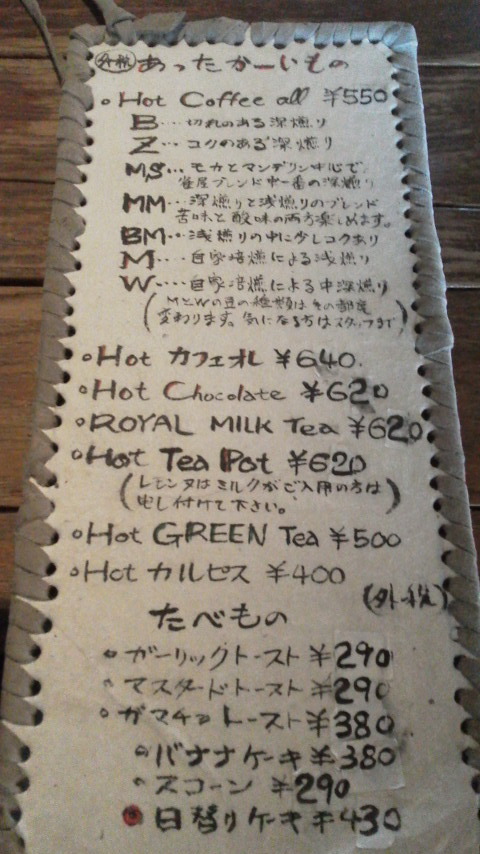 外税 あったかーいもの
Hot Coffee all ¥550
B… 切れのある深煎り
Z… コクのある深煎り
M,S… モカとマンデリン中心で
雀屋ブレンド中一番の深煎り
MM… 深煎りと浅煎りのブレンド
苦味と酸味の両方楽しめます。
BM… 浅煎りの中に少しコクあり
M… 自家焙煎による浅煎り
W… 自家焙煎による中深煎り
(MとWの豆の種類はその都度
変わります。気になる方はスタッフまで)
Hot カフェオレ ¥640.
Hot Chocolate ¥620
ROYAL MILK Tea ¥620
Hot Tea Pot ¥620
(レモン又はミルクがご入用の方は
申し付けて下さい。)
Hot GREEN Tea ¥500
Hot カルピス ¥400
(外税)
たべもの
ガーリックトースト ¥290
マスタードトースト ¥290
ガマチョトースト ¥380
バナナケーキ ¥380
スコーン ¥290
日替りケーキ ¥430